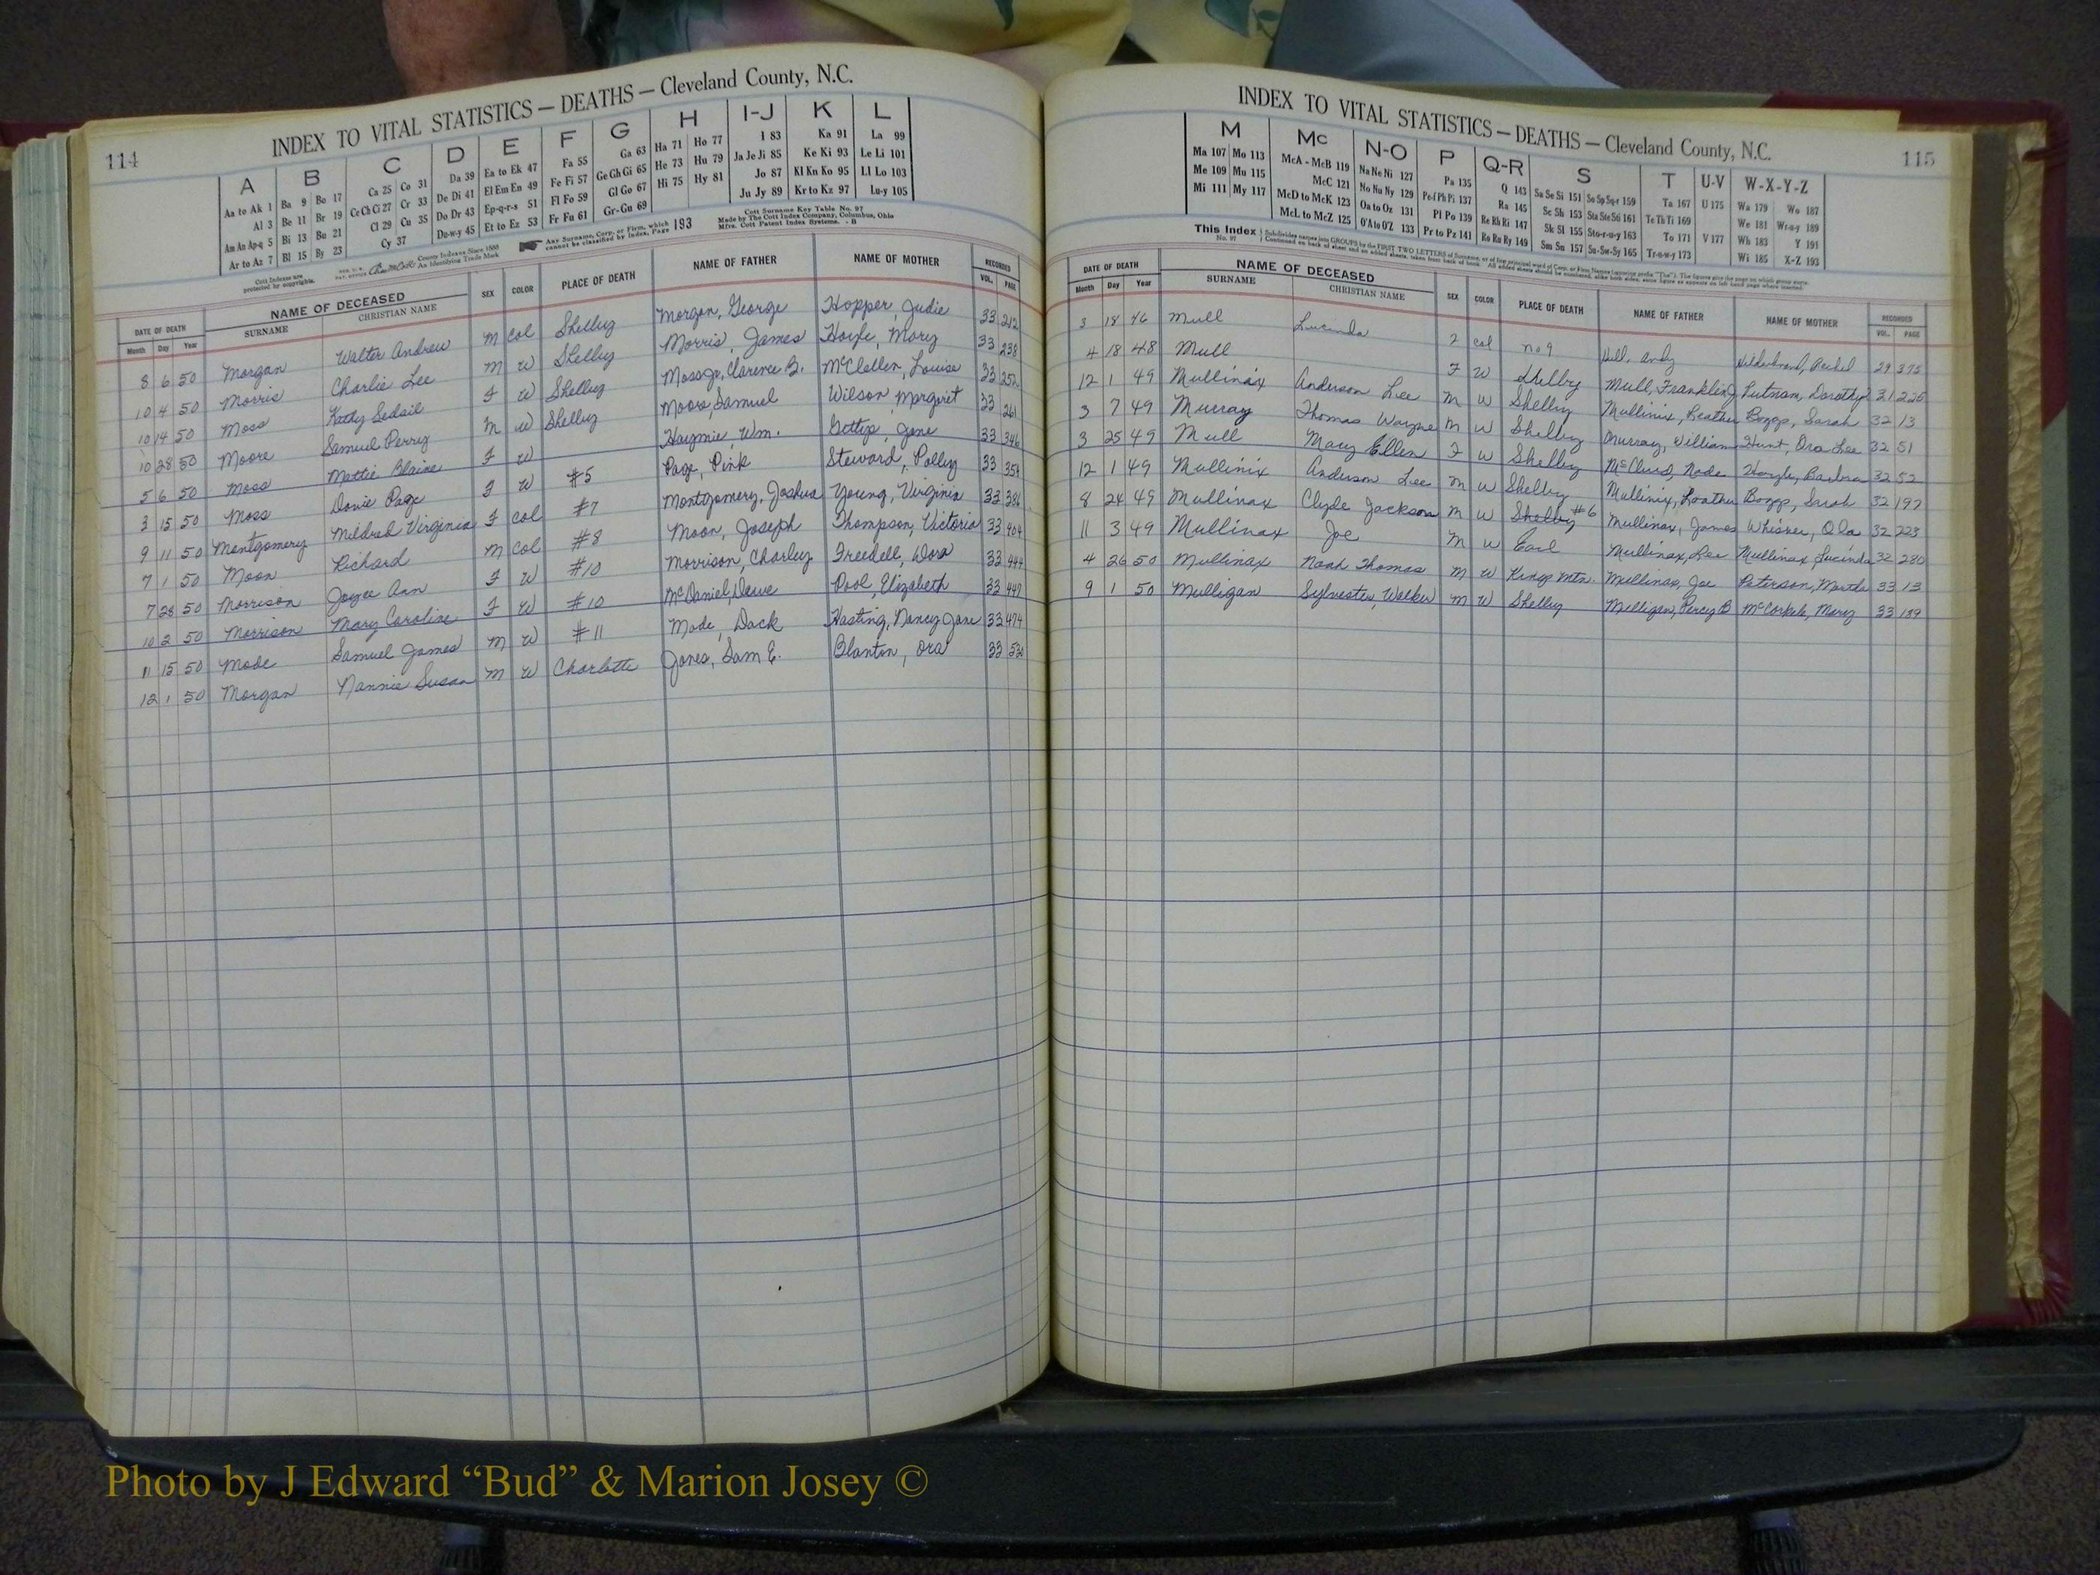 114
INDEX TO VITAL STATISTICS — DEATHS — Cleveland County, N.C.
A B C D E F G H I-J K L
Aa to Ak 1 Ba 9 Bo 17 Ca 25 Co 31 Da 39 Ea to Ek 47 Fa 55 Ga 63 Ha 71 Ho 77 I 83 Ka 91 La 99
Al 3 Be 11 Br 19 Ce Ch Ci 27 Cr 33 De Di 41 El Em En 49 Fe Fi 57 Ge Gh Gi 65 He 73 Hu 79 Ja Je Ji 85 Ke Ki 93 Le Li 101
Am An Ap-q 5 Bi 13 Bu 21 Cl 29 Cu 35 Do Dr 43 Ep-q-r-s 51 Fl Fo 59 Gl Go 67 Hi 75 Hy 81 Jo 87 Kl Kn Ko 95 Ll Lo 103
Ar to Az 7 Bl 15 By 23 Cy 37 Du-w-y 45 Et to Ez 53 Fr Fu 61 Gr-Gu 69 Ju Jy 89 Kr to Kz 97 Lu-y 105
Cott Indexes are protected by copyrights. County Indexes Since 1888 As Identifying Trade Mark
Any Surname, Corp. or Firm, which cannot be classified by Index, Page 193
Cott Surname Key Table No. 97
Made by The Cott Index Company, Columbus, Ohio
Mfrs. Cott Patent Index Systems. - B
DATE OF DEATH NAME OF DECEASED SEX COLOR PLACE OF DEATH NAME OF FATHER NAME OF MOTHER RECORDED
Month Day Year SURNAME CHRISTIAN NAME VOL. PAGE
8 6 50 Morgan Walter Andrew M Col Shelby Morgan, George Hopper Judie 33 212
10 4 50 Morris Charlie Lee M W Shelby Morris, James Hoyle, Mary 33 238
10 14 50 Moss Kathy Sedail F W Shelby Moss Jr, Clarence B. McClellen, Louise 33 252
10 28 50 Moore Samuel Perry M W Shelby Moore, Samuel Wilson, Margaret 33 261
5 6 50 Moss Mattie Blaine F W Haynie, Wm. Gettys, Jane 33 346
3 15 50 Moss Dovie Page F W #5 Page, Pink Steward, Polly 33 354
9 11 50 Montgomery Mildred Virginia F Col #7 Montgomery, Joshua Young, Virginia 33 386
7 1 50 Moon Richard M Col #8 Moon, Joseph Thompson, Victoria 33 404
7 28 50 Morrison Joyce Ann F W #10 Morrison, Charley Treedell, Dora 33 444
10 2 50 Morrison Mary Caroline F W #10 McDaniel, Dave Pool, Elizabeth 33 447
11 15 50 Mode Samuel James M W #11 Mode, Dack Hasting, Nancy Jane 33 474
12 1 50 Morgan Nannie Susan M W Charlotte Jones, Sam E. Blanton, Ora 33 530
INDEX TO VITAL STATISTICS — DEATHS — Cleveland County, N.C.
115
M Mc N-O P Q-R S T U-V W-X-Y-Z
Ma 107 Mo 113 McA - McB 119 Na Ne Ni 127 Pa 135 Q 143 Sa Se Si 151 So Sp Sq-r 159 Ta 167 U 175 Wa 179 Wo 187
Me 109 Mu 115 McC 121 No Nu Ny 129 Pe-f Ph Pi 137 Ra 145 Sc Sh 153 Sta Ste Sti 161 Te Th Ti 169 We 181 Wr-u-y 189
Mi 111 My 117 McD to McK 123 Oa to Oz 131 Pl Po 139 Re Rh Ri 147 Sk Sl 155 Sto-r-u-y 163 To 171 V 177 Wh 183 Y 191
McL to McZ 125 O'A to O'Z 133 Pr to Pz 141 Ro Ru Ry 149 Sm Sn 157 Su-Sw-Sy 165 Tr-u-w-y 173 Wi 185 X-Z 193
This Index No. 97 Subdivides names into GROUPS by the FIRST TWO LETTERS of Surname, or of first principal word of Corp. or Firm Names
DATE OF DEATH NAME OF DECEASED SEX COLOR PLACE OF DEATH NAME OF FATHER NAME OF MOTHER RECORDED
Month Day Year SURNAME CHRISTIAN NAME VOL. PAGE
3 18 46 Mull Lucinda F Col No 9 Hull, Andy Hildebrand, 29 375
4 18 48 Mull F W Shelby Mull, Franklin J Putnam, Dorothy 31 225
12 1 49 Mullinix Anderson Lee M W Shelby Mullinix, Boggs, Sarah 32 13
3 7 49 Murray Thomas Wayne M W Shelby Murray, William Hunt, Ora Lee 32 51
3 25 49 Mull Macy Ellen F W Shelby Hoyle, Barbra 32 52
12 1 49 Mullinix Anderson Lee M W Shelby Mullinix, Boggs, Sarah 32 197
8 24 49 Mullinax Clyde Jackson M W Shelby #6 Mullinax, James Whisner, Ola 32 223
11 3 49 Mullinax Joe M W Earl Mullinax, Lee Mullinax Lucinda 32 280
4 26 50 Mullinax Noah Thomas M W Kings Mtn. Mullinax, Joe Peterson, Martha 33 13
9 1 50 Mulligan Sylvester, Walker M W Shelby Milligan, Percy B McCorkle, Mary 33 189
Photo by J Edward “Bud” & Marion Josey ©